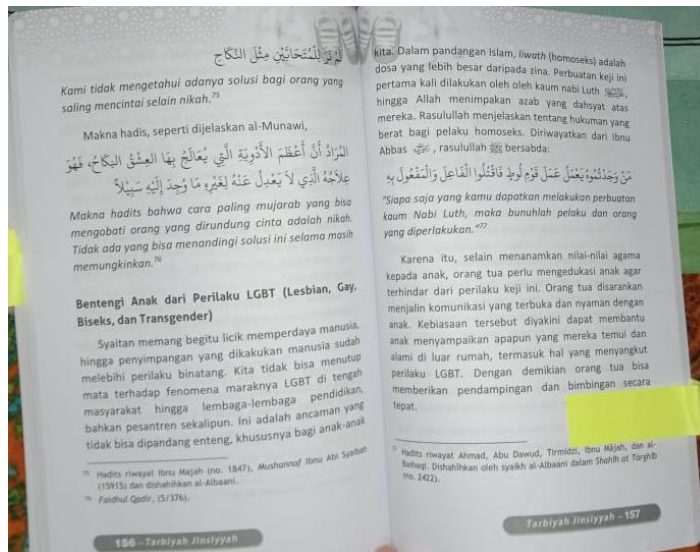 لَمْ نَرَ لِلْمُتَحَابَّيْنِ مِثْلَ النِّكَاحِ
Kami tidak mengetahui adanya solusi bagi orang yang
saling mencintai selain nikah.⁷⁵
Makna hadis, seperti dijelaskan al-Munawi,
المُرَادُ أَنَّ أَعْظَمَ الأَدْوِيَةِ الَّتِي يُعَالَجُ بِهَا العِشْقُ النِّكَاحُ، فَهُوَ
عِلَاجُهُ الَّذِي لَا يَعْدِلُ عَنْهُ لِغَيْرِهِ مَا وُجِدَ إِلَيْهِ سَبِيْلاً
Makna hadits bahwa cara paling mujarab yang bisa
mengobati orang yang dirundung cinta adalah nikah.
Tidak ada yang bisa menandingi solusi ini selama masih
memungkinkan.⁷⁶
Bentengi Anak dari Perilaku LGBT (Lesbian, Gay,
Biseks, dan Transgender)
Syaitan memang begitu licik memperdaya manusia,
hingga penyimpangan yang dikakukan manusia sudah
melebihi perilaku binatang. Kita tidak bisa menutup
mata terhadap fenomena maraknya LGBT di tengah
masyarakat hingga lembaga-lembaga pendidikan,
bahkan pesantren sekalipun. Ini adalah ancaman yang
tidak bisa dipandang enteng, khususnya bagi anak-anak
⁷⁵ Hadits riwayat Ibnu Majah (no. 1847), Mushannaf Ibnu Abi Syaibah
(15915) dan dishahihkan al-Albaani.
⁷⁶ Faidhul Qadir, (5/376).
156 – Tarbiyah Jinsiyyah
kita. Dalam pandangan Islam, liwath (homoseks) adalah
dosa yang lebih besar daripada zina. Perbuatan keji ini
pertama kali dilakukan oleh oleh kaum nabi Luth
hingga Allah menimpakan azab yang dahsyat atas
mereka. Rasulullah menjelaskan tentang hukuman yang
berat bagi pelaku homoseks. Diriwayatkan dari Ibnu
Abbas , rasulullah ﷺ bersabda:
مَنْ وَجَدْتُمُوْهُ يَعْمَلُ عَمَلَ قَوْمِ لُوْطٍ فَاقْتُلُوا الْفَاعِلَ وَالْمَفْعُوْلَ بِهِ
"Siapa saja yang kamu dapatkan melakukan perbuatan
kaum Nabi Luth, maka bunuhlah pelaku dan orang
yang diperlakukan."⁷⁷
Karena itu, selain menanamkan nilai-nilai agama
kepada anak, orang tua perlu mengedukasi anak agar
terhindar dari perilaku keji ini. Orang tua disarankan
menjalin komunikasi yang terbuka dan nyaman dengan
anak. Kebiasaan tersebut diyakini dapat membantu
anak menyampaikan apapun yang mereka temui dan
alami di luar rumah, termasuk hal yang menyangkut
perilaku LGBT. Dengan demikian orang tua bisa
memberikan pendampingan dan bimbingan secara
tepat.
⁷⁷ Hadits riwayat Ahmad, Abu Dawud, Tirmidzi, Ibnu Mâjah, dan al-
Baihaqi. Dishahihkan oleh syaikh al-Albaani dalam Shahih at Targhib
(no. 2422).
Tarbiyah Jinsiyyah – 157